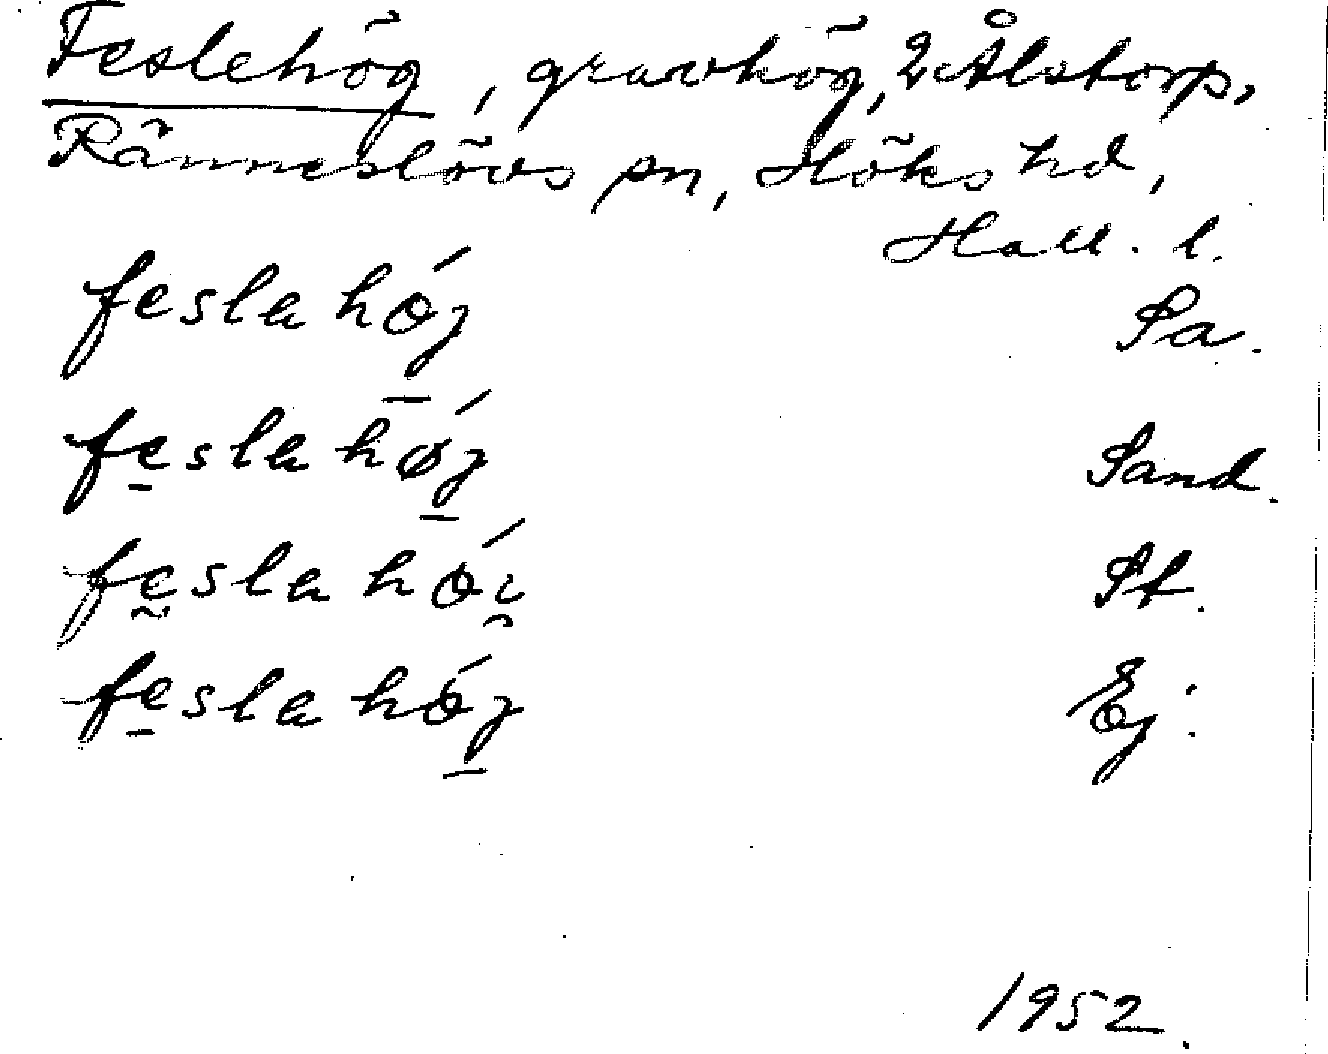 Feslehög, gravhög, 2 Ålstorp,
Ränneslövs sn, Höks hd,
Hall. l.
feslahö́j Sa.
fe̠slahǿj Sand.
fḛslahö́i̯ St.
fe̠slahö́j Ej.
1952.